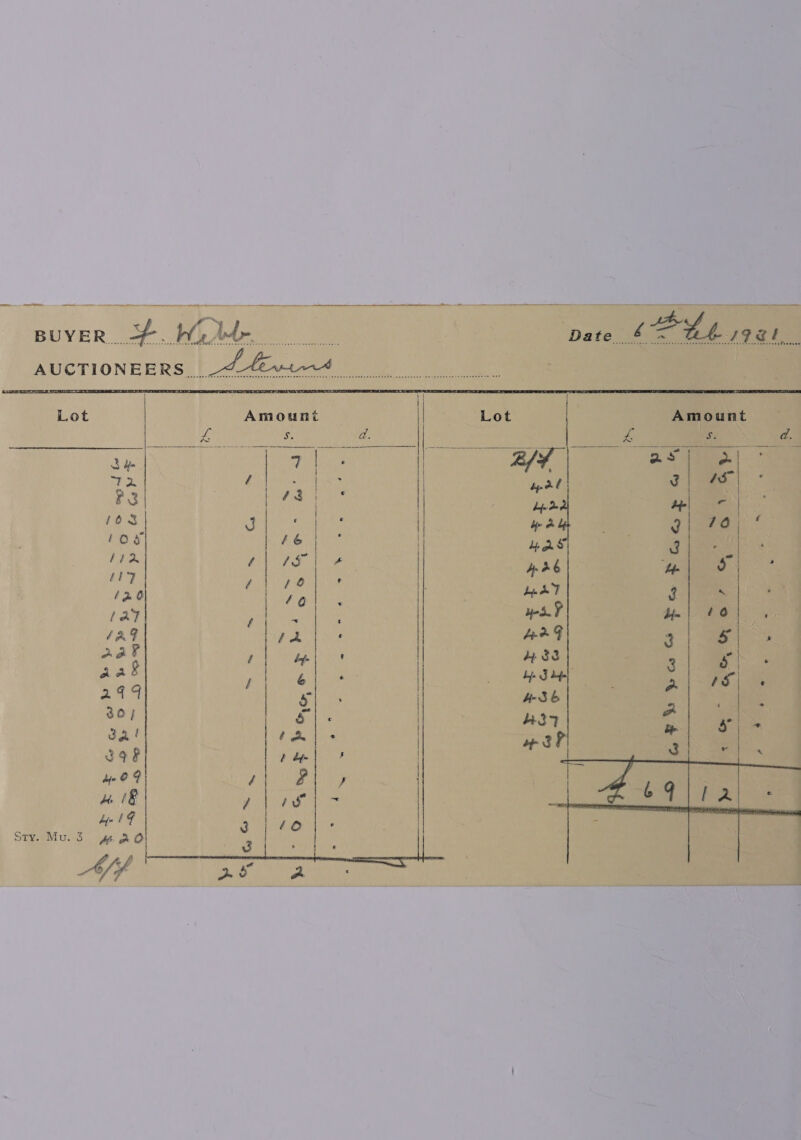 BUYER F. W. Date 6th Feb 1921
AUCTIONEERS Stevens
Lot Amount Lot Amount
£ s. d. £ s. d.
34 7 - B/F 25 2 -
72 1 - - 421 3 15 -
83 13 - 422 4 - -
103 3 - - 424 3 10 -
105 16 - 425 3 - -
112 1 15 - 426 4 5 -
117 1 10 - 427 3 - -
120 10 - 428 4 10 -
127 1 - - 429 3 5 -
129 12 - 433 3 5 -
228 1 4 - 434 2 15 -
228 1 6 - 436 2 - -
299 5 - 437 4 5 -
301 5 - 438 3 - -
321 12 - £69 12 -
398 14 -
409 1 8 -
418 1 15 -
419 3 10 -
Sty. Mu. 3 420 3 - -
C/F 25 2 -